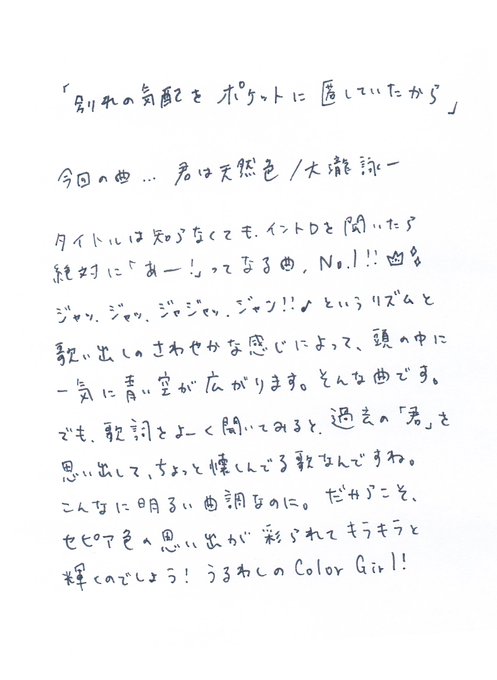 「別れの気配を ポケットに 匿していたから」
今回の曲… 君は天然色/大瀧詠一
タイトルは知らなくても、イントロを聞いたら
絶対に「あー!」ってなる曲、No.1!!
ジャッ、ジャッ、ジャジャッ、ジャン!!♪ というリズムと
歌い出しのさわやかな感じによって、頭の中に
一気に青い空が広がります。そんな曲です。
でも、歌詞をよーく聞いてみると、過去の「君」を
思い出して、ちょっと懐しんでる歌なんですね。
こんなに明るい曲調なのに。だからこそ、
セピア色の思い出が 彩られてキラキラと
輝くのでしょう! うるわしの Color Girl!